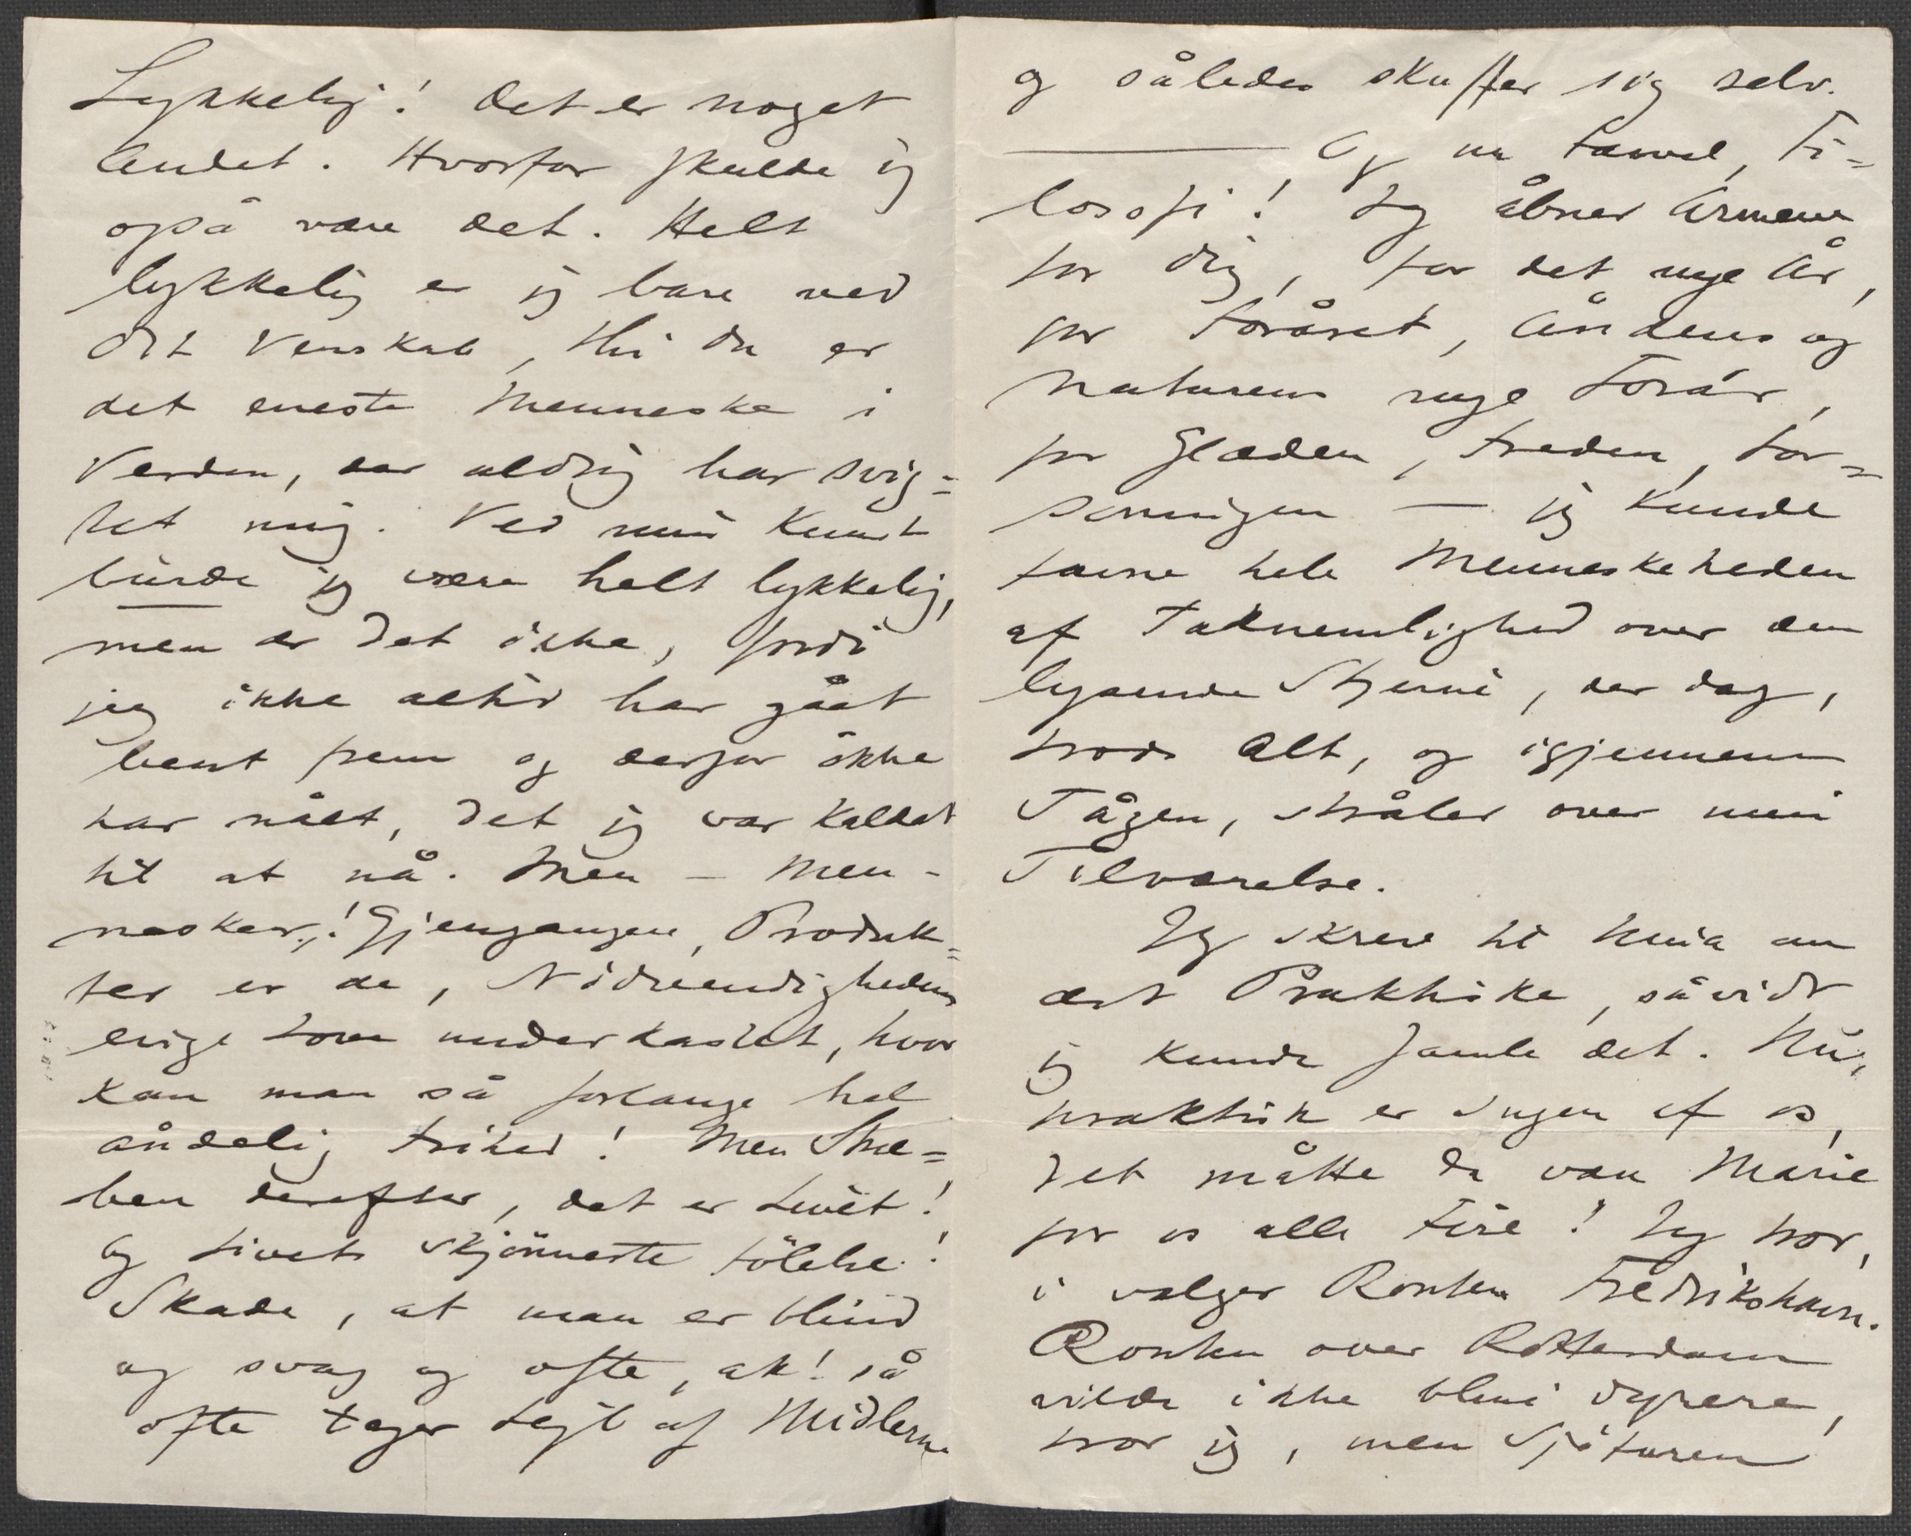 Lykkelig! Det er noget
Andet. Hvorfor skulde jeg
også være det. Helt
lykkelig er jeg bare ved
Dit Venskab, thi Du er
det eneste Menneske i
Verden, der aldrig har svig=
tet mig. Ved min Kunst
burde jeg være helt lykkelig,
men er det ikke, fordi
jeg ikke altid har gået
bent frem og derfor ikke
har nået, det jeg var kaldet
til at nå. Men – Men-
nesker! Gjengangere, Produk=
ter er de, Nödvendighedens
evige Love underkastet, hvor
kan man så forlange hel
åndelig Frihed! Men Stræ=
ben derefter, det er Livet!
Og Livets skjönneste Fölelse!
Skade, at man er blind
og svag og ofte, ak! så
ofte tager Fejl af Midlerne
og således skuffer sig selv.
— Og nu Farvel, Fi=
losofi! Jeg åbner Armene
for Dig, for det nye År,
for Foråret, Åndens og
Naturens nye Forår,
for Glæden, Freden, For=
soningen — jeg kunde
favne hele Menneskeheden
af Taknemlighed over den
lysende Stjerne, der dog,
trods Alt, og igjennem
Tågen, stråler over min
Tilværelse.
Jeg skrev til Nina om
det Praktiske, såvidt
jeg kunde samle det. Nu,
praktisk er Ingen af os,
det måtte da være Marie
for os alle Fire! Jeg tror,
i vælger Routen Fredrikshavn.
Routen over Rotterdam
vilde ikke blive dyrere,
tror jeg, men Sjöturen